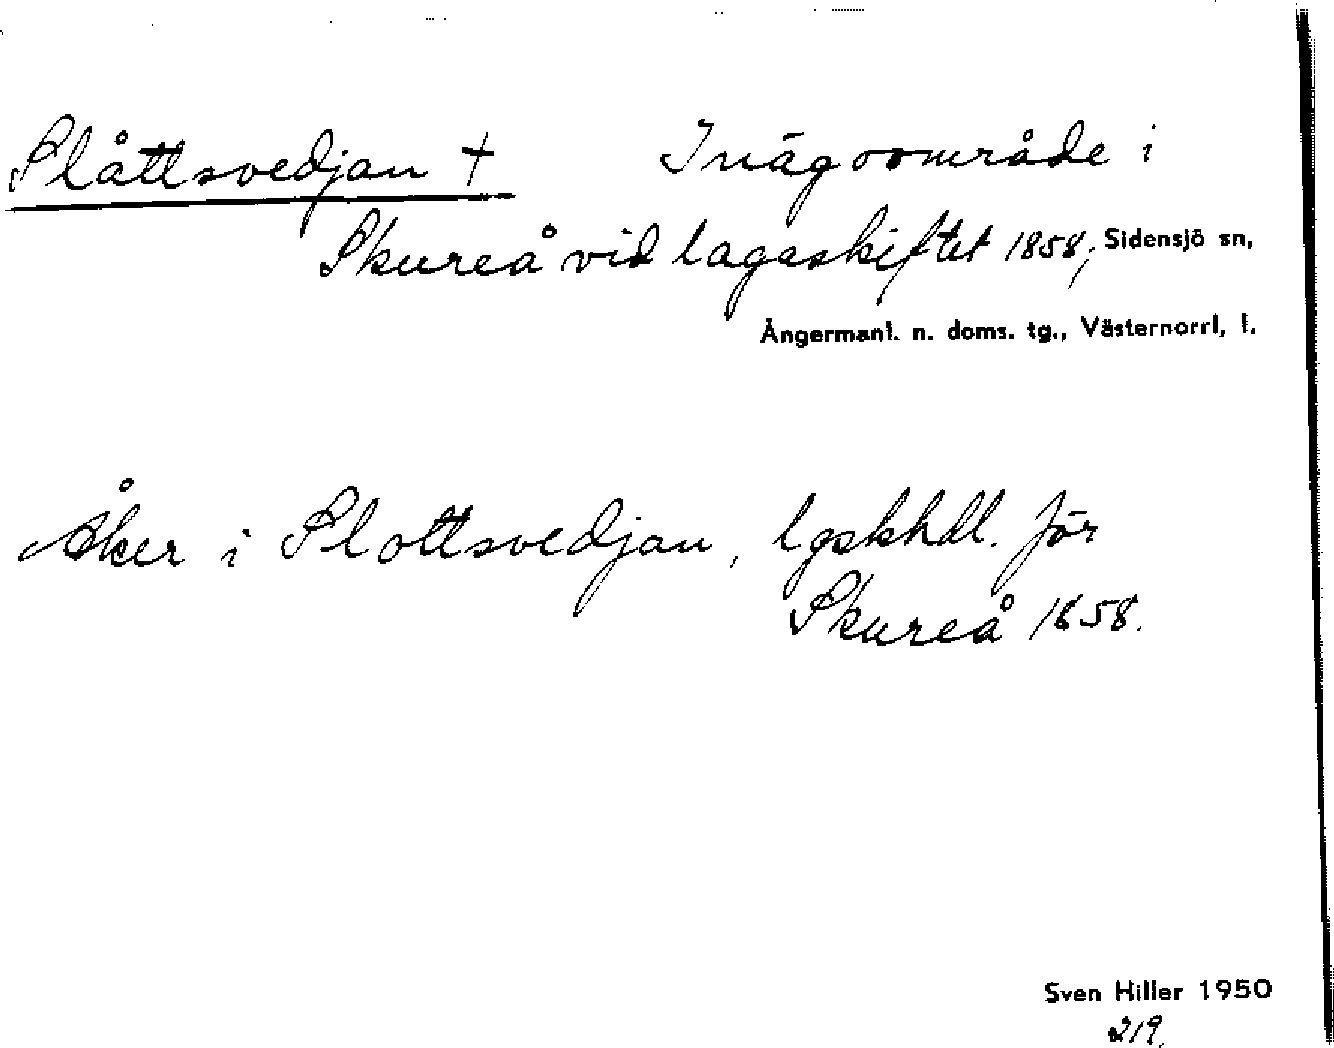 Slåttsvedjan † Inägoområde i
Skureå vid lagaskiftet 1858; Sidensjö sn,
Ångermanl. n. doms. tg., Västernorrl, l.
Åker i Slottsvedjan, lgskhdl. för
Skureå 1858.
Sven Hiller 1950
219.